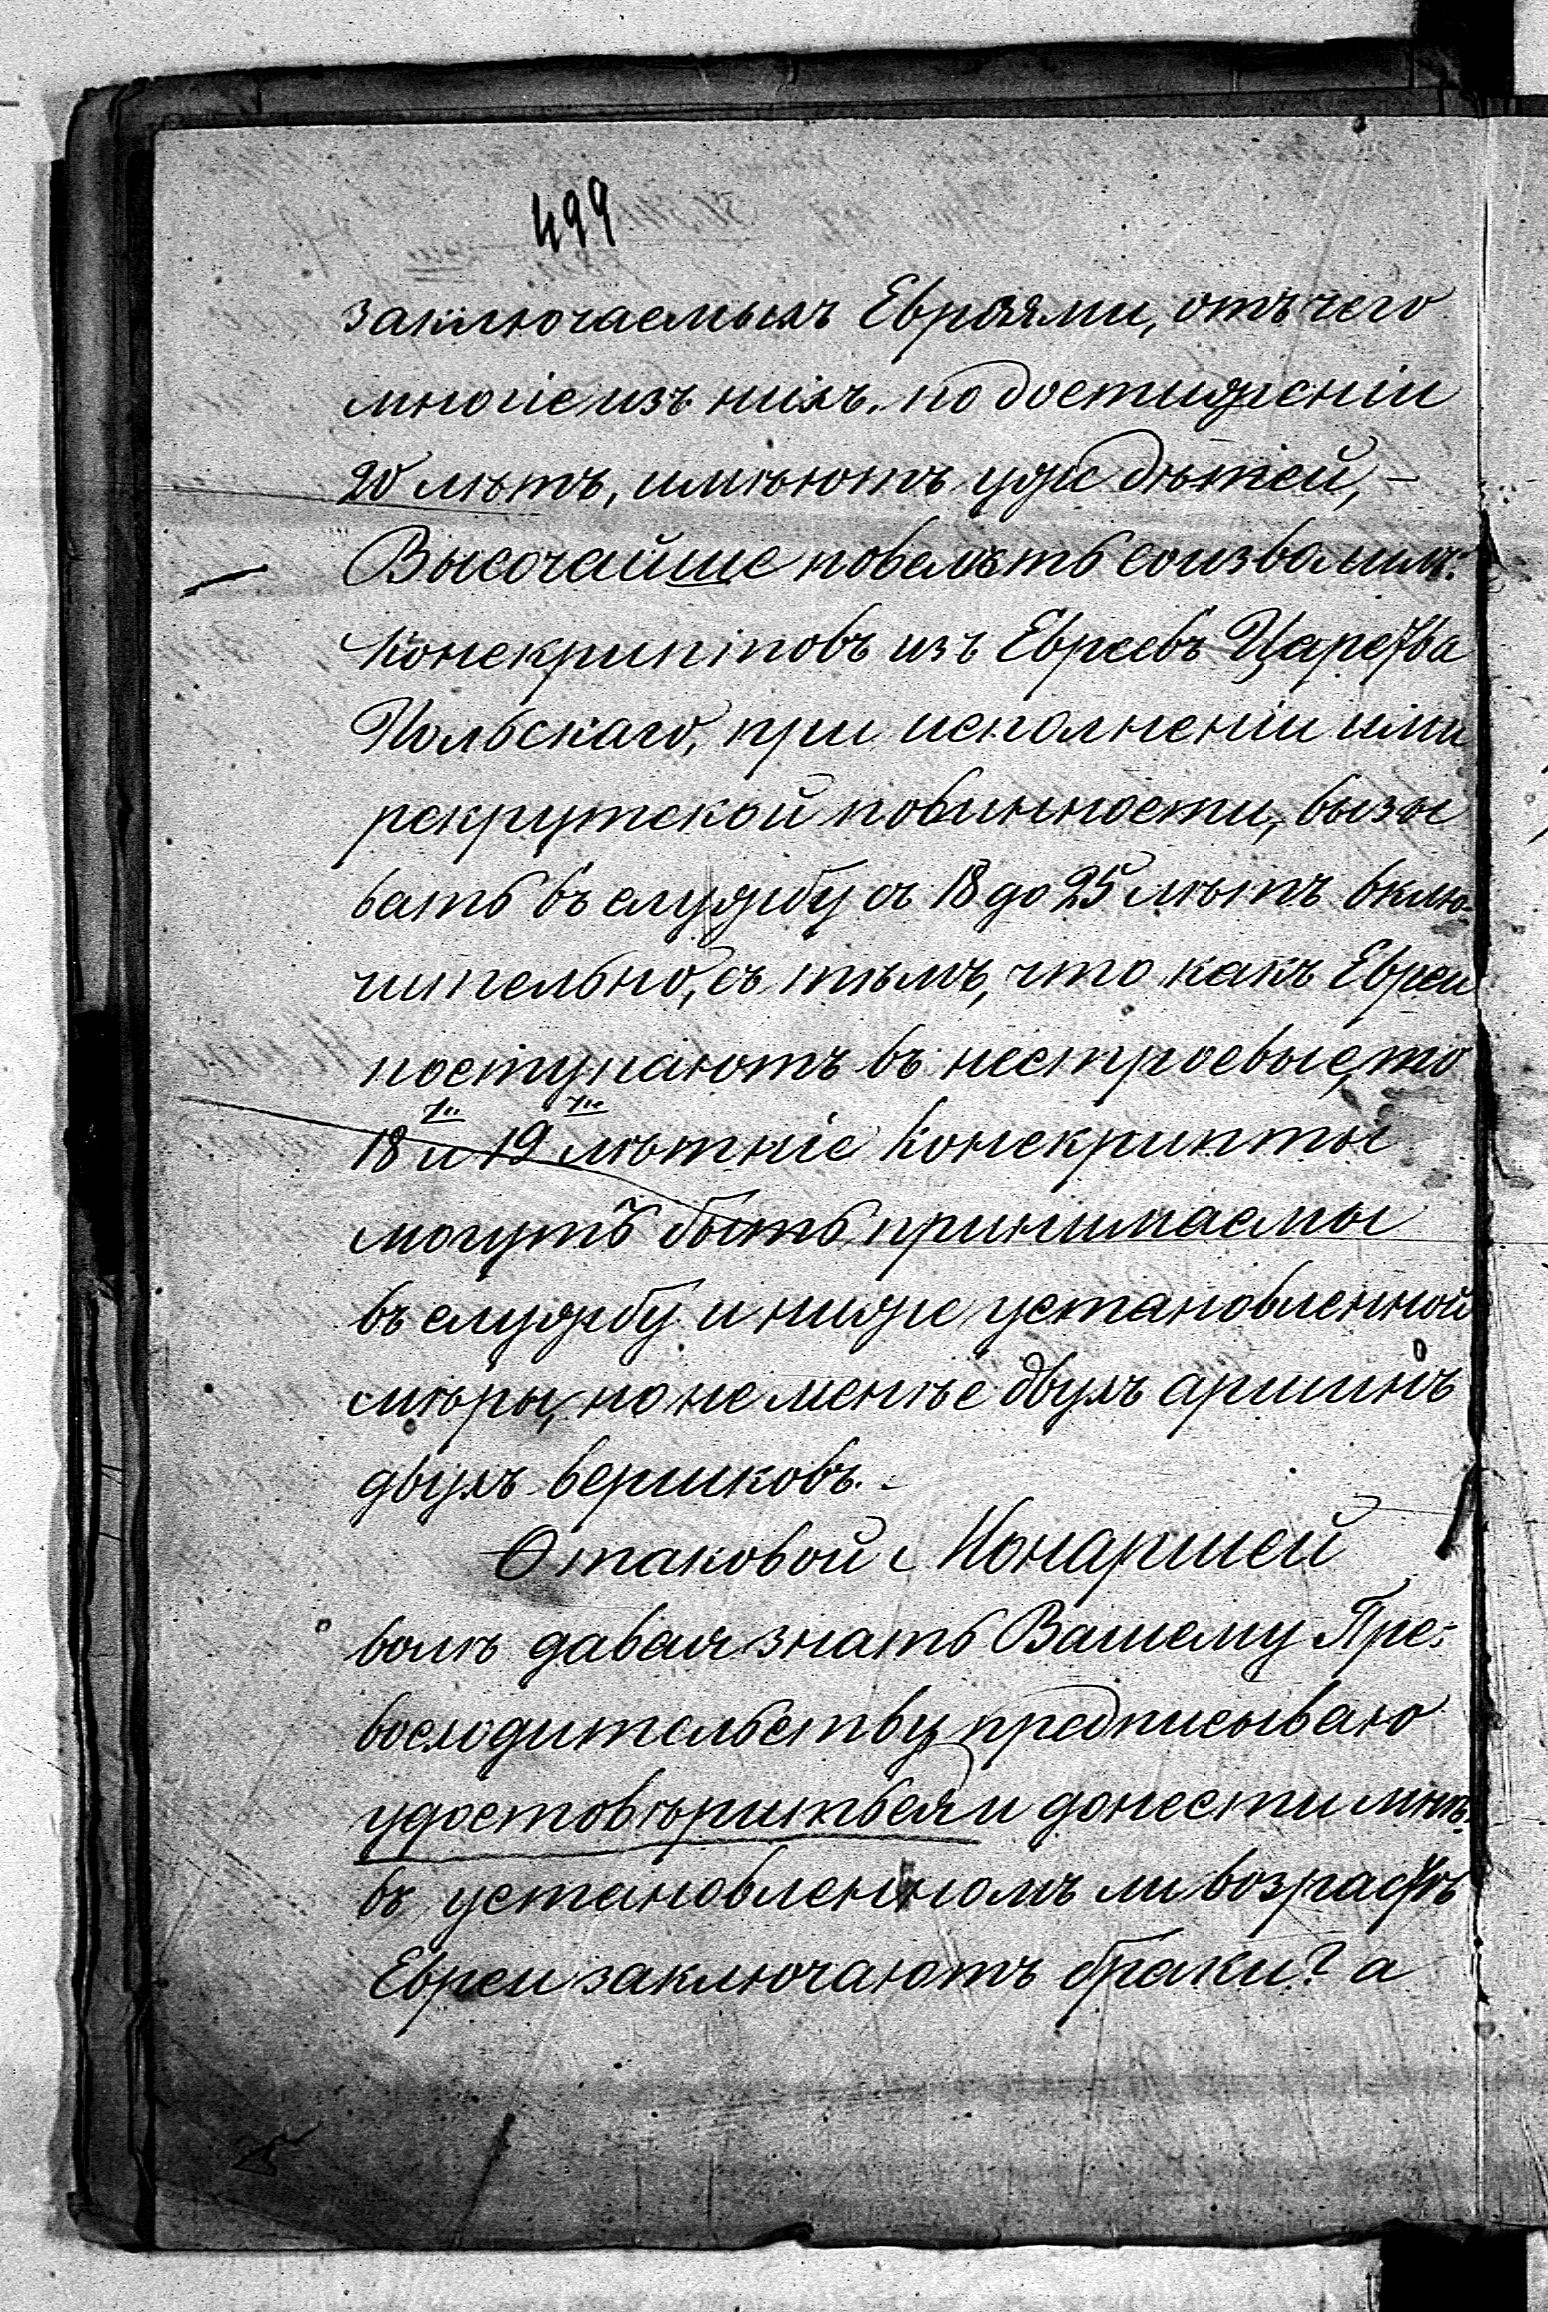 499
заключаемыхъ Евреями, отъ чего
многіе изъ нихъ, по достиженіи
20 лѣтъ, имѣютъ уже дѣтей, –
Высочайше повелѣть соизволилъ:
Конскриптовъ изъ Евреевъ Царства
Польскаго, при исполненіи ими
рекрутской повинности, вызы
вать въ службу съ 18 до 25 лѣтъ вклю-
чительно, съ тѣмъ, что какъ Евреи
поступаютъ въ нестроевые, то
18 ти и 19 ти лѣтніе Конскрипты
могутъ быть принимаемы
въ службу и ниже установленной
мѣры, но не менѣе двухъ аршинъ
двухъ вершковъ. –
О таковой Монаршей
волѣ давая знать Вашему Пре-
восходительству, предписываю
удостовѣриться и донести мнѣ:
въ установленномъ ли возрастѣ
Евреи заключаютъ браки? а